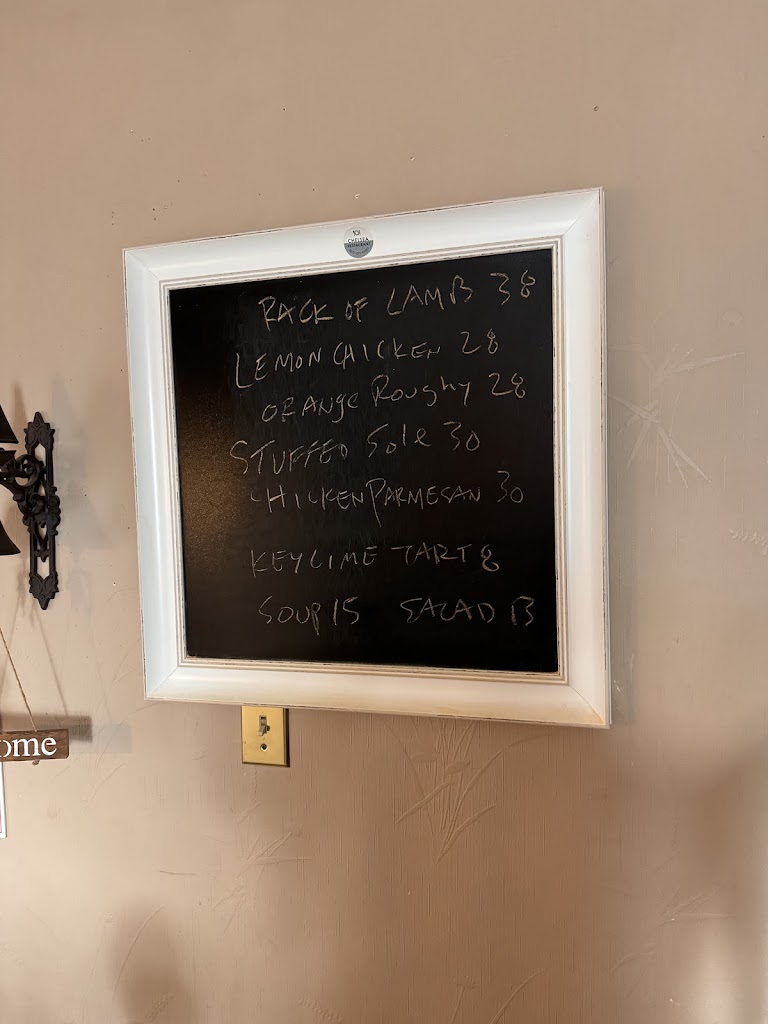 101
CHELSEA
RESTAURANT
RACK OF LAMB 38
LEMON CHICKEN 28
ORANGE ROUGHY 28
STUFFED Sole 30
CHICKEN PARMESAN 30
KEY LIME TART 8
SOUP 15 SALAD 13
ome